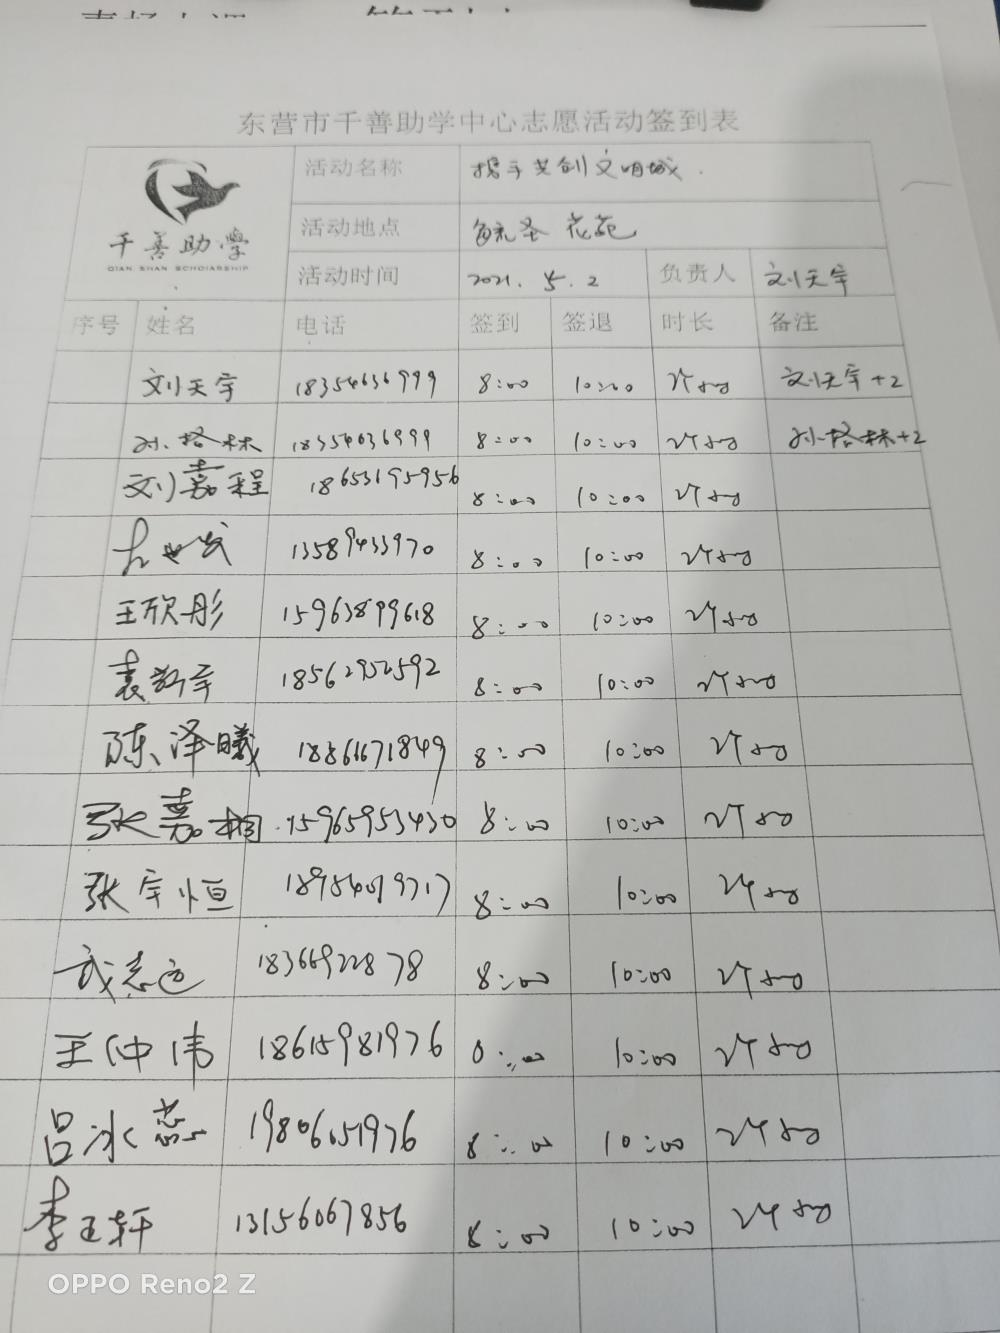 东营市千善助学中心志愿活动签到表
千善助学
QIAN SHAN SCHOLARSHIP
活动名称 携手共创文明城.
活动地点 花苑
活动时间 2021.5.2 负责人 刘天宇
序号 姓名 电话 签到 签退 时长 备注
刘天宇 18354636999 8:00 10:00 2个小时 刘天宇+2
孙塔林 18354636999 8:00 10:00 2个小时 孙塔林+2
刘嘉程 18653195956 8:00 10:00 2个小时
13589433970 8:00 10:00 2个小时
王欣彤 15963899618 8:00 10:00 2个小时
袁 18562952592 8:00 10:00 2个小时
陈泽曦 18861671849 8:00 10:00 2个小时
张嘉桐 15965953430 8:00 10:00 2个小时
张宇恒 18954019717 8:00 10:00 2个小时
武志远 18366922878 8:00 10:00 2个小时
王仲伟 18615981976 10:00 2个小时
吕冰蕊 19806651976 8:00 10:00 2个小时
李玉轩 13156067856 8:00 10:00 2个小时
OPPO Reno2 Z